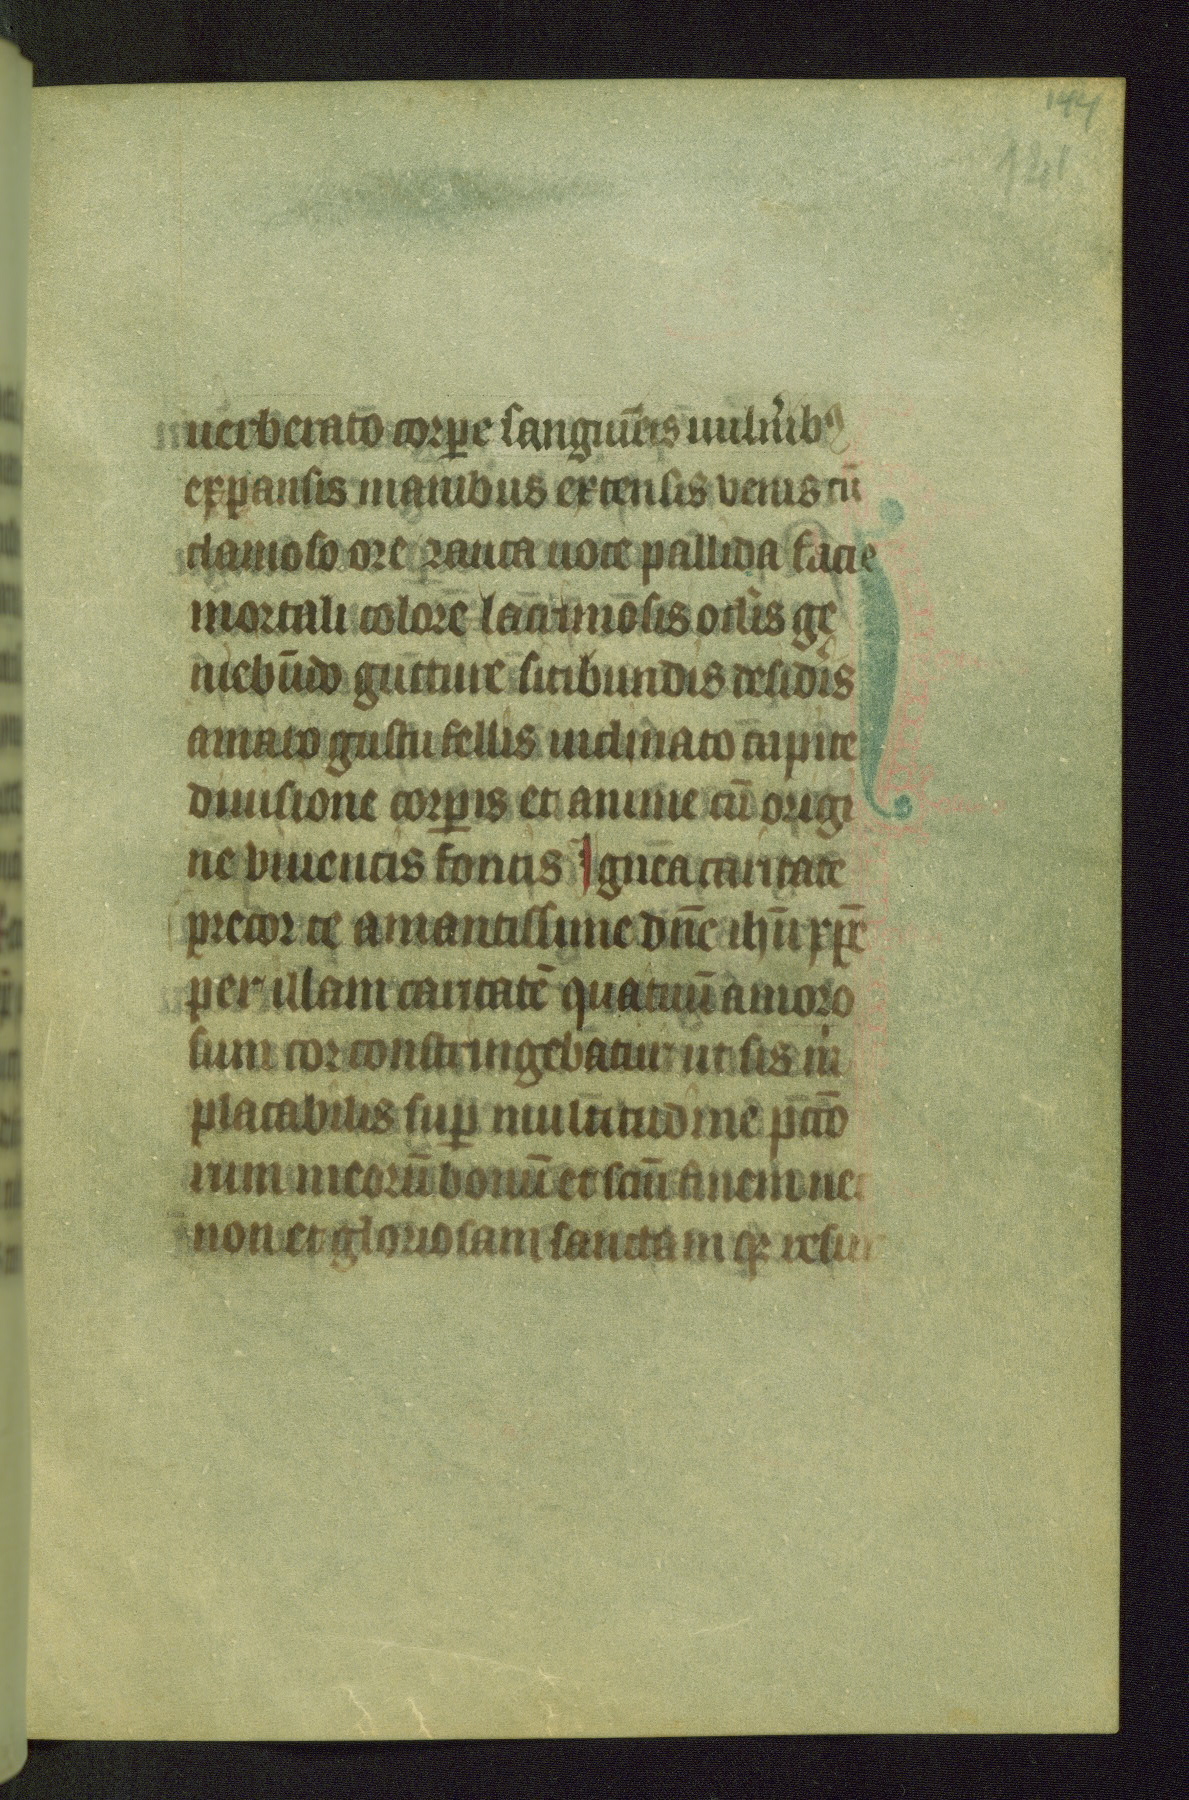 144
121
uerberato corpe sanguineis uulnib9
expansis manibus extensis venis cū
clamoso ore rauca uoce pallida facie
mortali colore lacrimosis oclis ge
mebūdo gutture sitibundis desidiis
amaro gustu fellis inclinato capite
diuisione corpis et anime cū origi
ne viuentis fontis Ignea caritate
precor te amantissime dn̄e ihū xp̄e
per illam caritatē qua tuū amoro
sum cor constringebatur ut sis m̄
placabilis sup multitudine pctō
rum meorū bonū et scm̄ finem nec
non et gloriosam sanctamq; resur